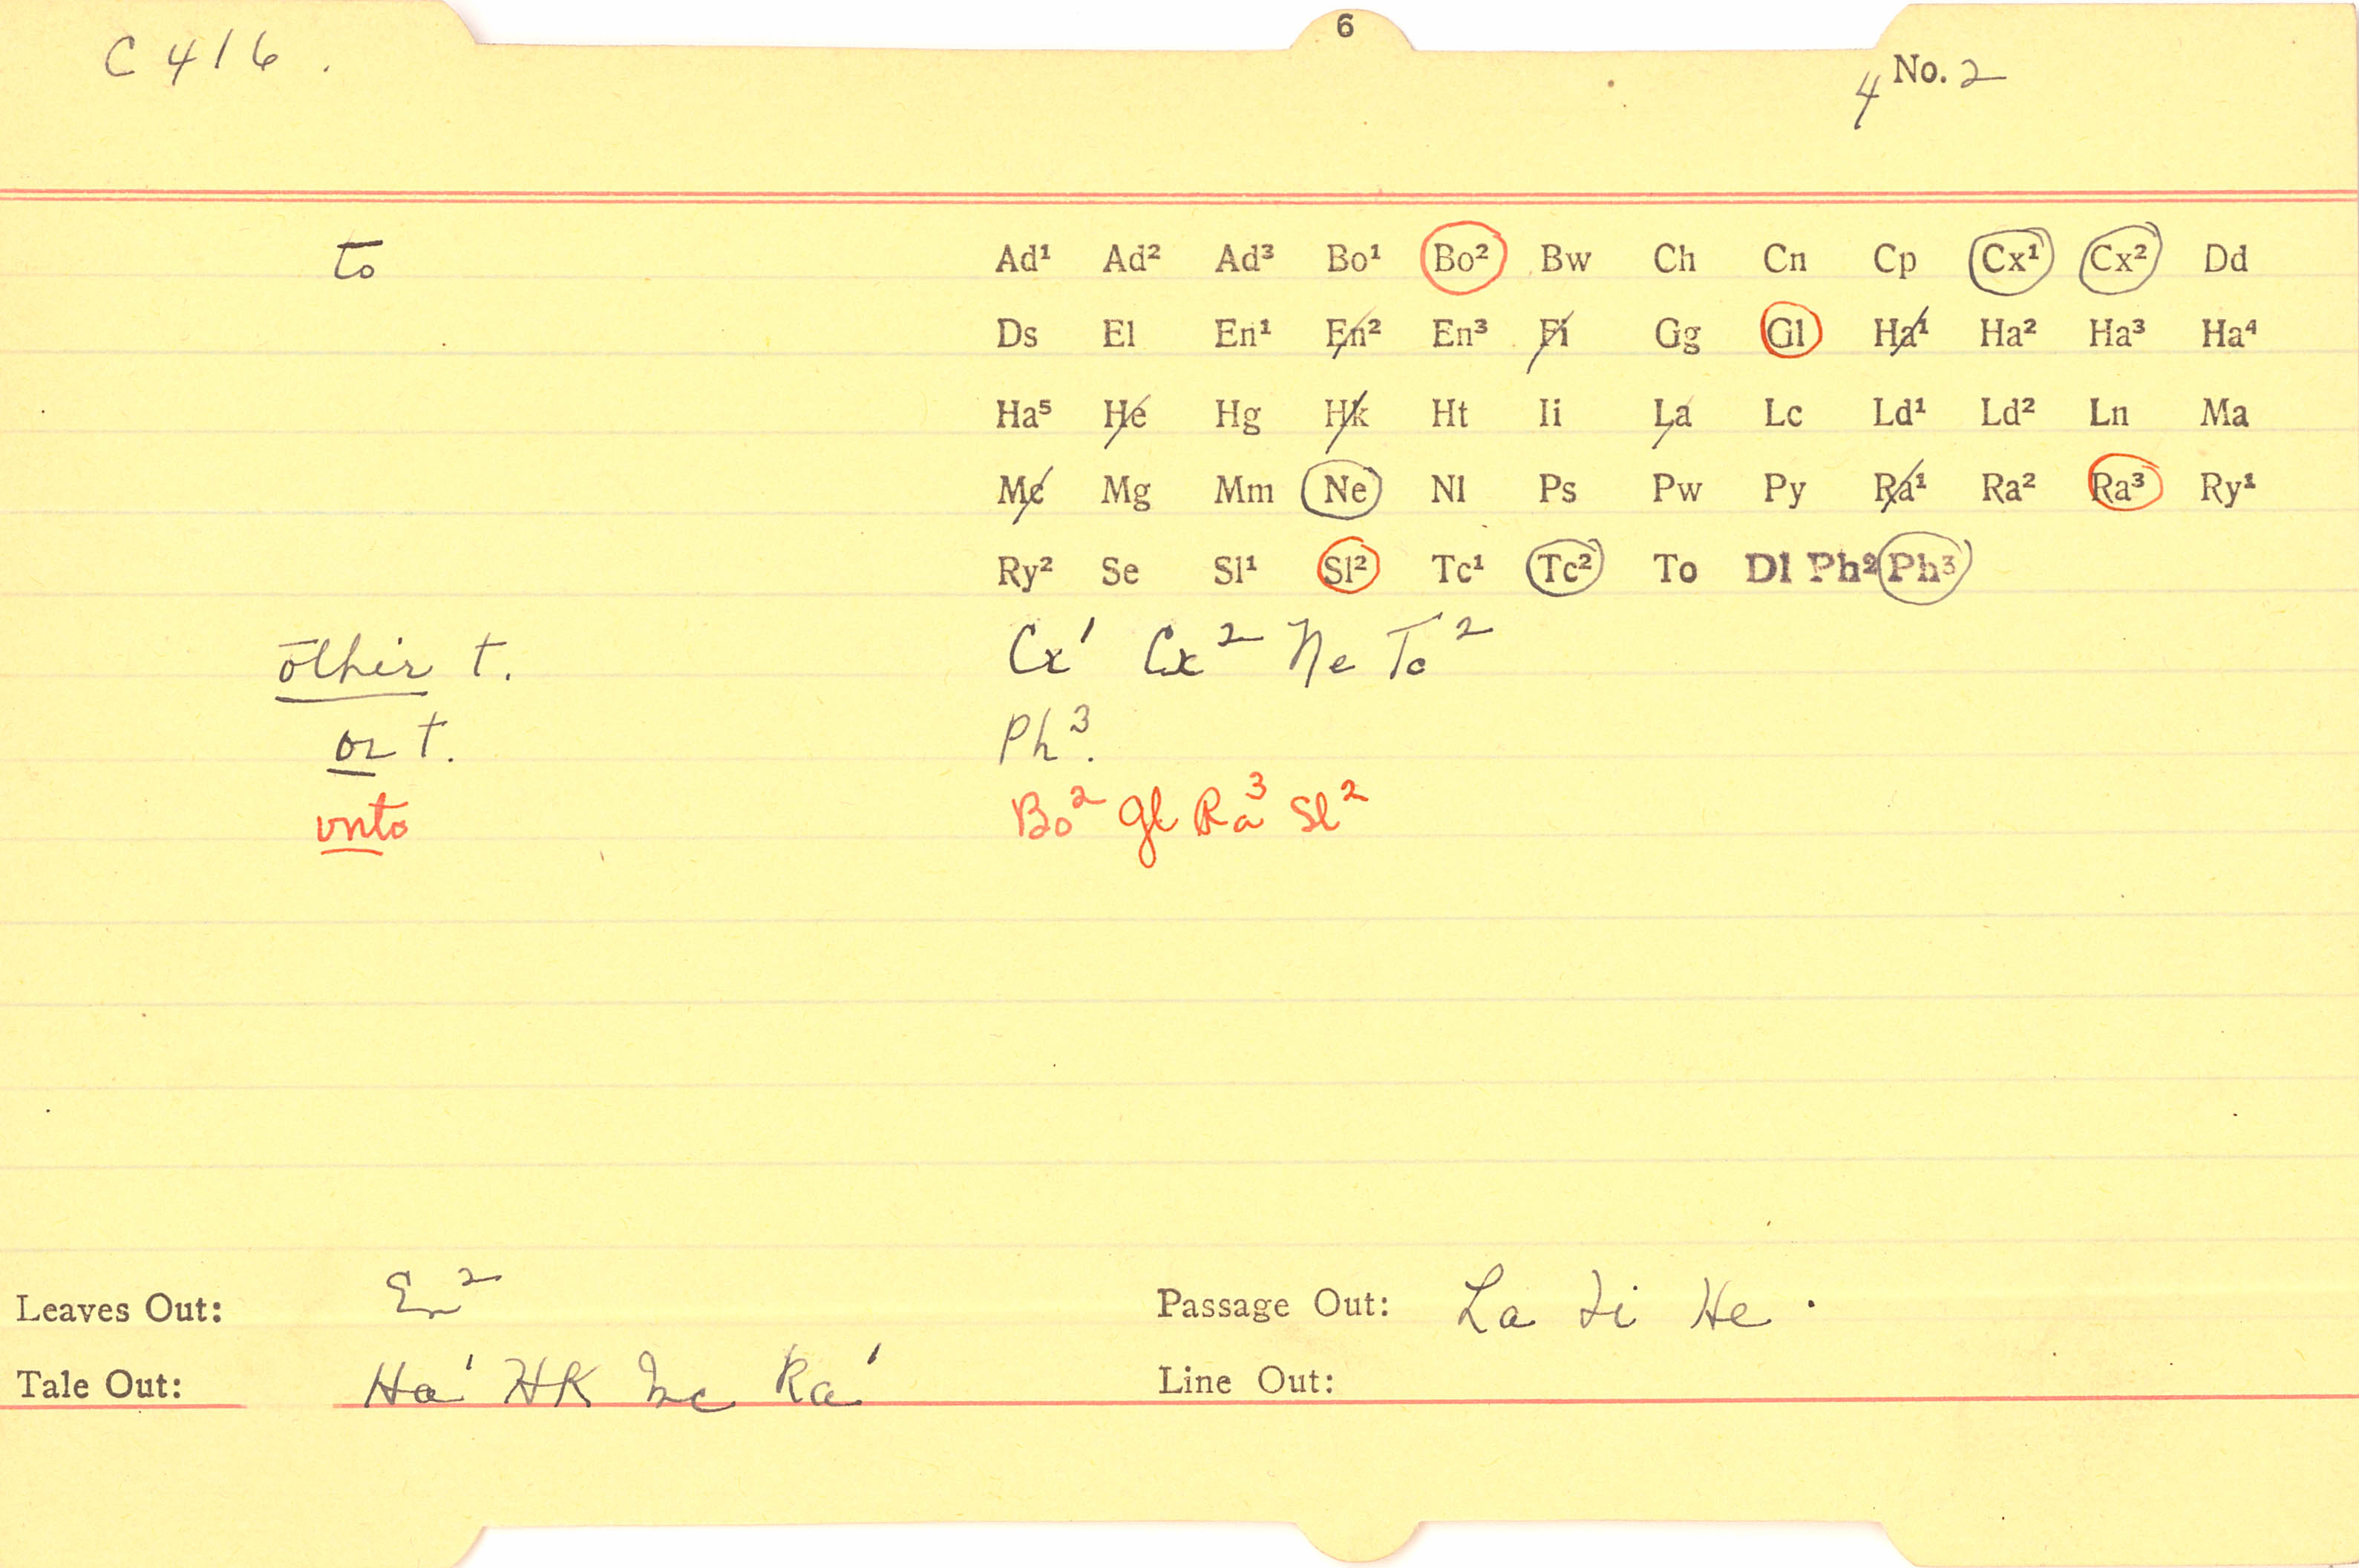 6
C 416 .
4 No. 2
to
Ad¹ Ad² Ad³ Bo¹ Bo² Bw Ch Cn Cp Cx¹ Cx² Dd
Ds El En¹ En² En³ Fi Gg Gl Ha¹ Ha² Ha³ Ha⁴
Ha⁵ He Hg Hk Ht Ii La Lc Ld¹ Ld² Ln Ma
Mc Mg Mm Ne Nl Ps Pw Py Ra¹ Ra² Ra³ Ry¹
Ry² Se Sl¹ Sl² Tc¹ Tc² To Dl Ph² Ph³
othir t. Cx¹ Cx² Ne Tc²
or t. Ph³.
vnto Bo² Gl Ra³ Sl²
Leaves Out: En² Passage Out: La Fi He .
Tale Out: Ha¹ HK Mc Ra¹ Line Out: